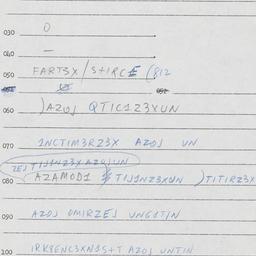 030 0
040 —
050 FARTSX/S+IRCE (812
060 )AZOJ QTIC1Z3XUN
070 1NCTIM3RZ3X AZOJ UN
ZEJ TIJ1NZ3XAZOJUN
080 AZAMOD1 TIJ1NZ3XUN )TITIRZ3X
090 AZOJ OMIRZEJ UNG1TIN
100 IRK8ENC3XN1S+T AZOJ UNTIN